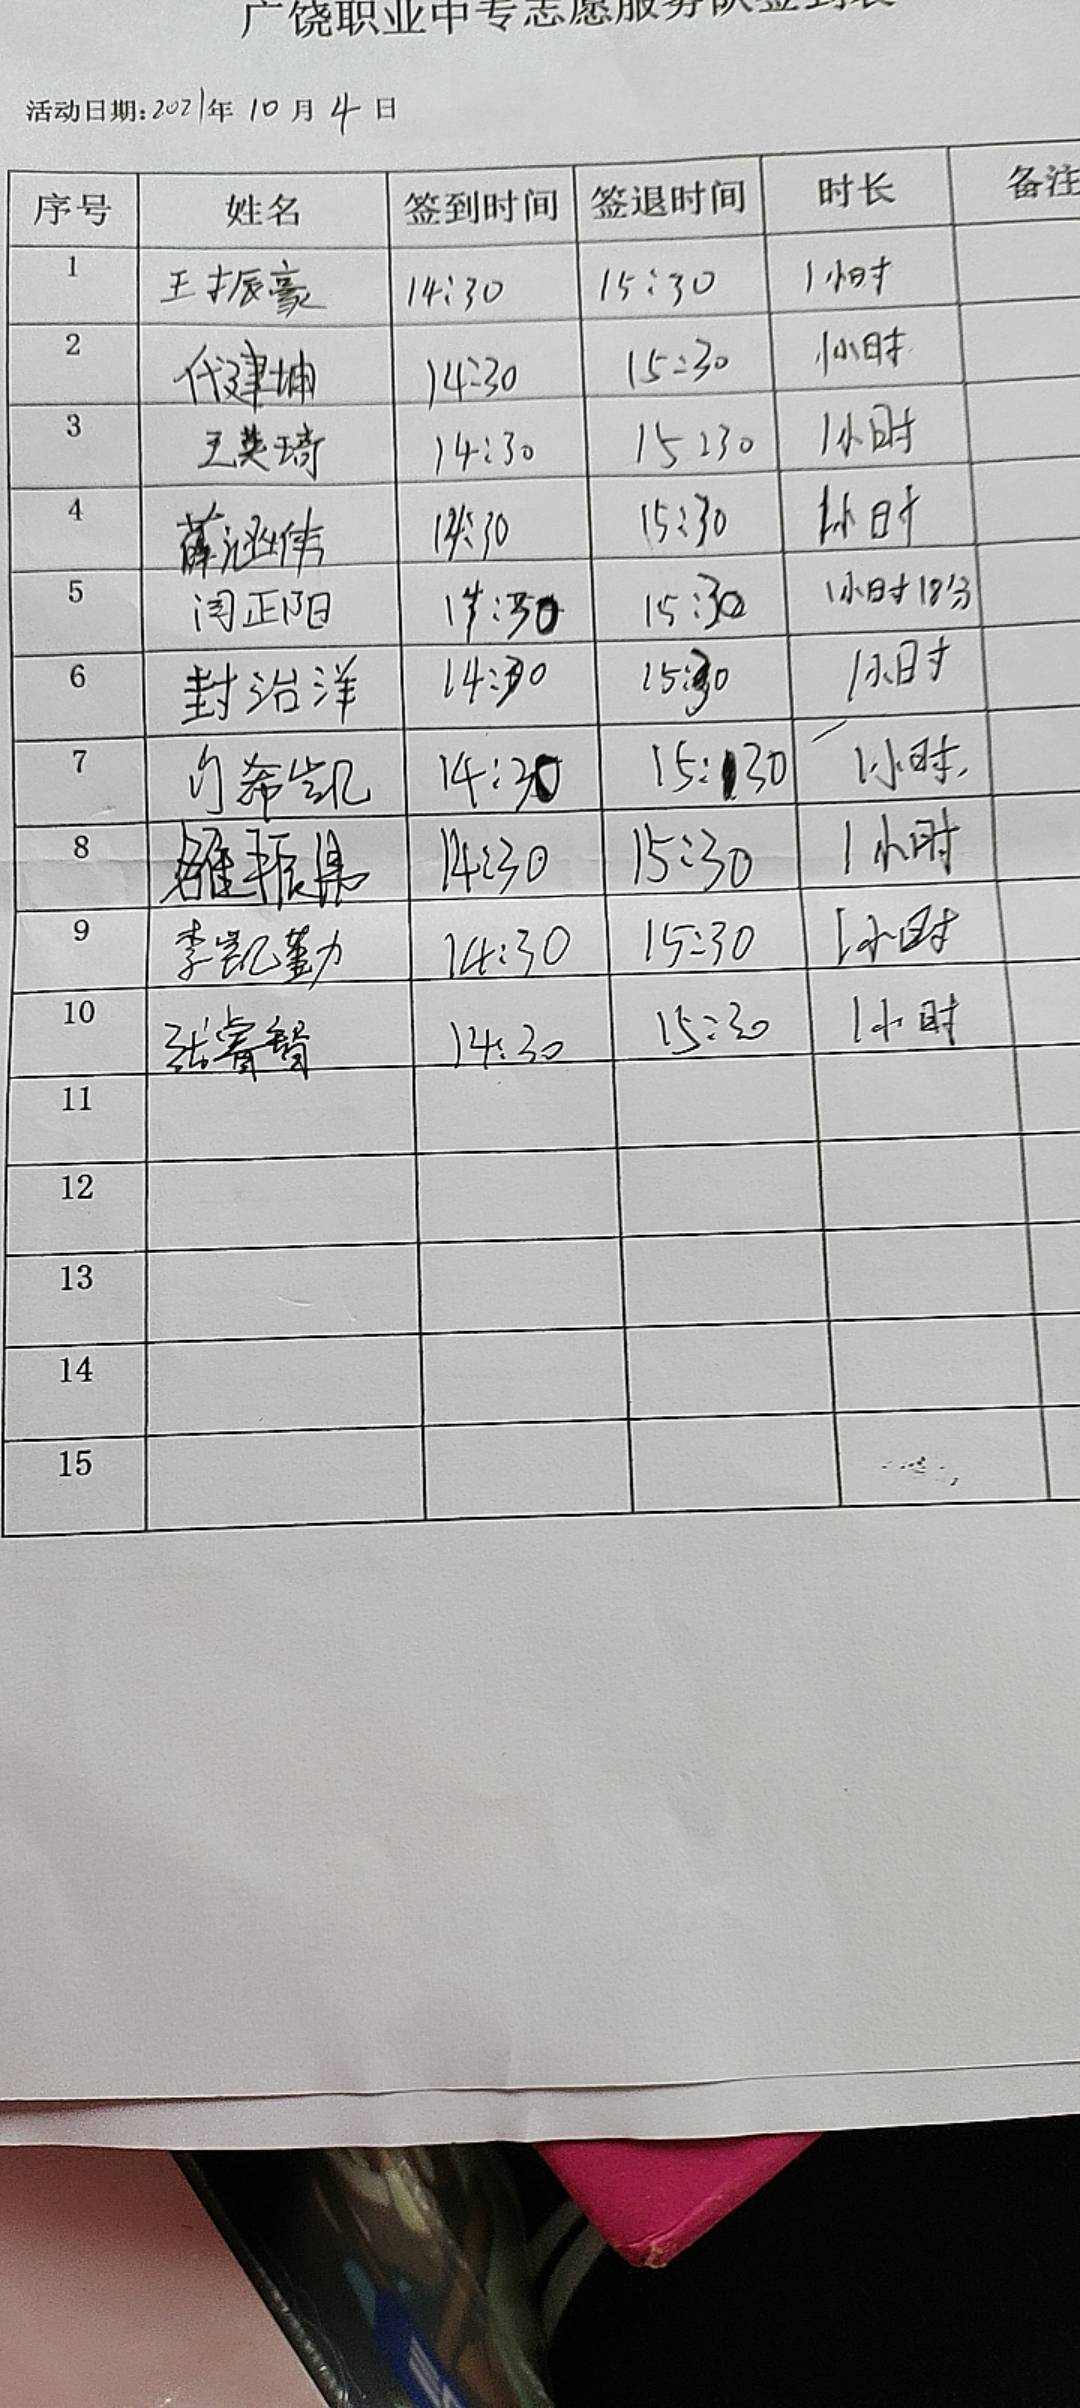 广饶职业中专志愿服务队签到表
活动日期:2021年 10 月 4 日
序号 姓名 签到时间 签退时间 时长 备注
1 王振豪 14:30 15:30 1小时
2 代建坤 14:30 15:30 1小时
3 王英琦 14:30 15:30 1小时
4 薛 伟 14:30 15:30 1小时
5 闫正阳 14:30 15:30 1小时18分
6 封治洋 14:30 15:30 1小时
7 希凯 14:30 15:30 1小时
8 振 14:30 15:30 1小时
9 李凯勤 14:30 15:30 1小时
10 张睿智 14:30 15:30 1小时
11
12
13
14
15